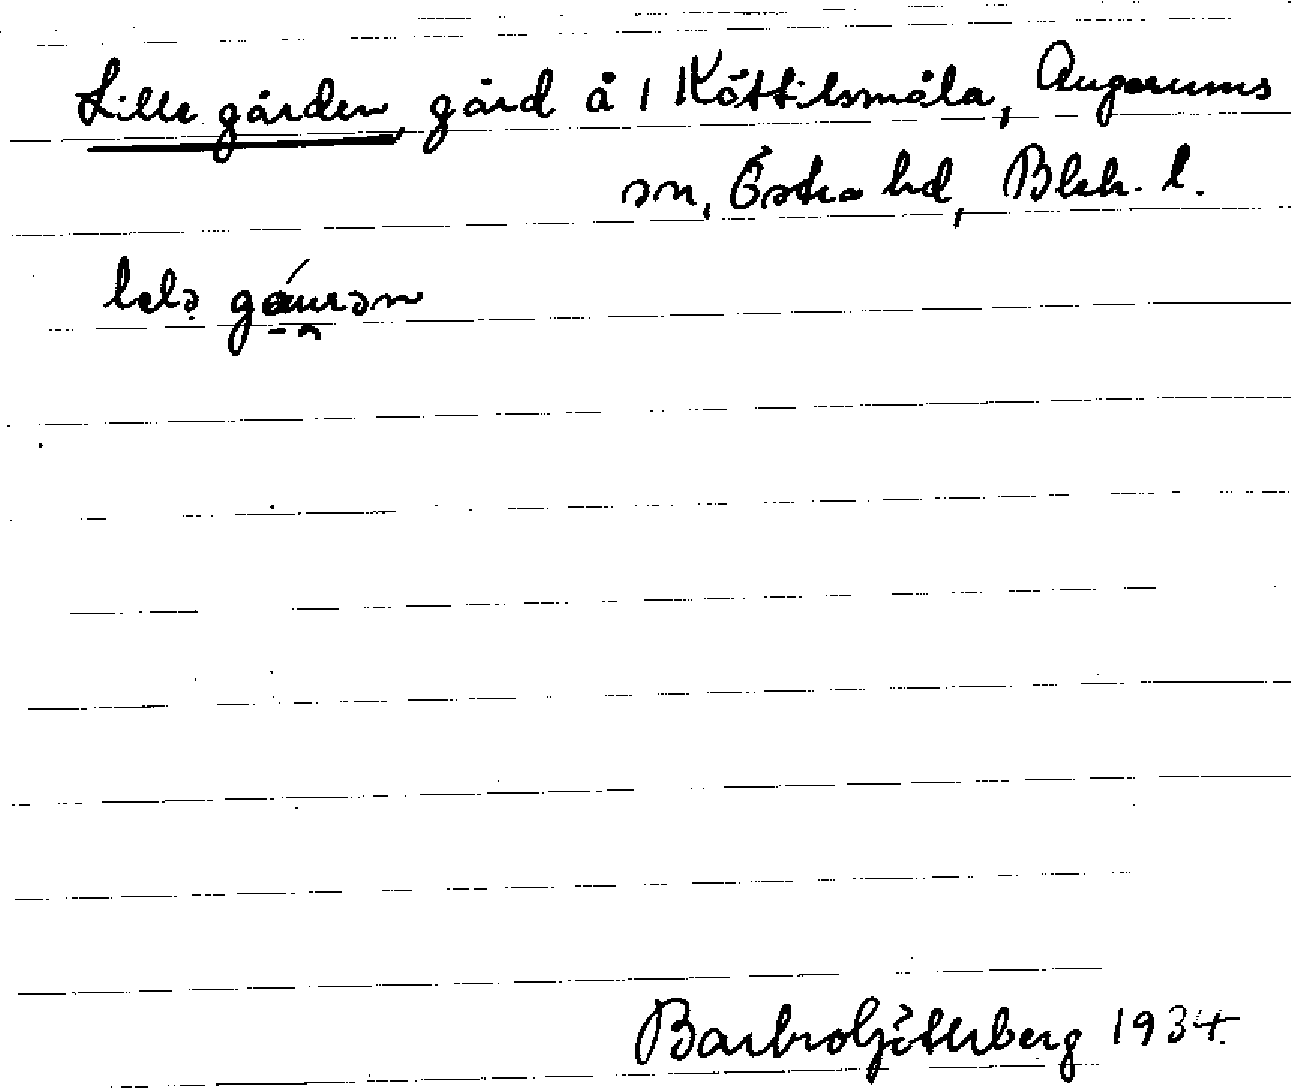 Lille gården, gård å 1 Köttilsmåla, Augerums
sn, Östra hd, Blek. l.
lelə gåurən
Barbro Götherberg 1934.